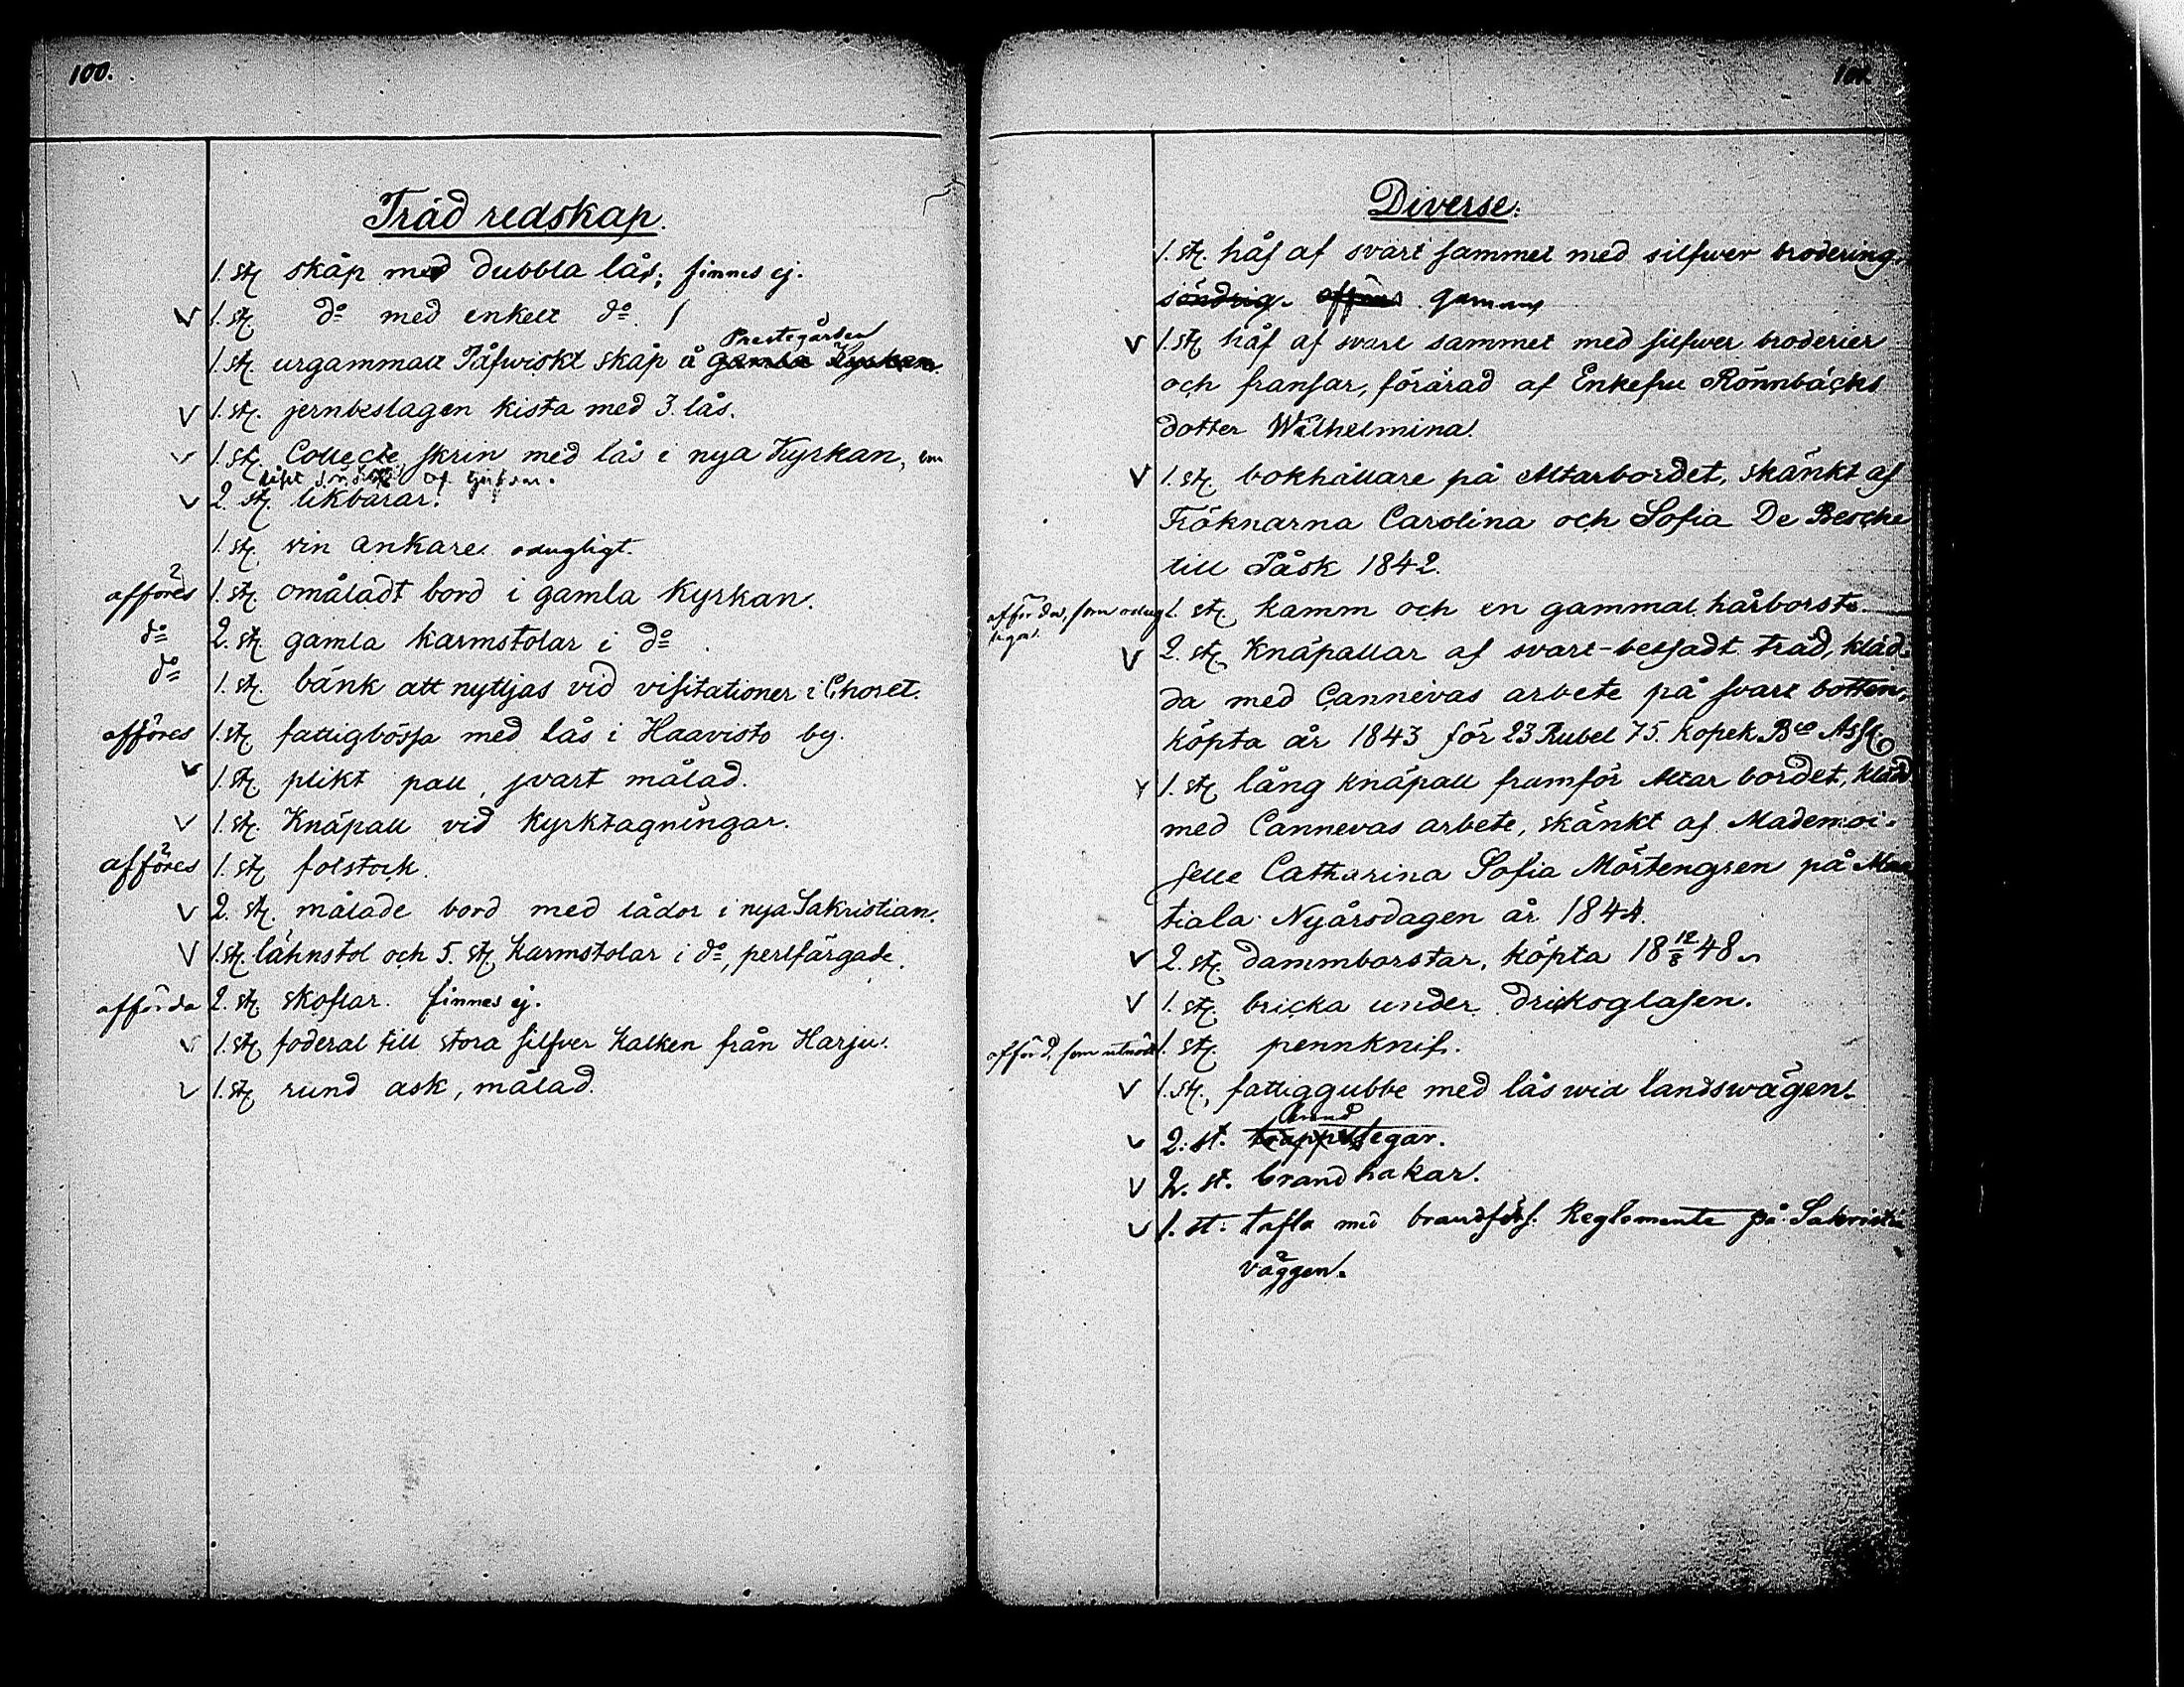 100.
Träd redskap.
1. st. skåp med dubbla lås; finnes ej.
V 1. st. do med enkelt do.
Prestegården
1. st. urgammalt Påfwiskt skåp å gamla Kyrkan
V 1. st. jernbeslagen kista med 3. lås.
V 1. st. Collecte skrin med lås i nya Kyrkan,
V 2. st. likbårar.
1. st. vin ankare odugligt.
afföres 1. st. omåladt bord i gamla Kyrkan.
do 2. st. gamla karmstolar i do.
do 1. st. bänk att nyttjas vid visitationer i Choret.
afföres 1. st. fattigbössa med lås i Haavisto by.
V 1. st. plikt pall, svart målad.
V 1. st. Knäpall vid Kyrktagningar.
afföres 1. st. fotstock.
V 2. st. målade bord med lådor i nya Sakristian.
V 1. st. lähnstol och 5. st. karmstolar i do, perlfärgade.
afförda 2. st. skoflar. finnes ej.
V 1. st. foderal till stora silfver kalken från Harju.
V 1. st. rund ask, målad.
Diverse.
1. st. håf af svart sammet med silfwer brodering.
söndrig.
V 1. st. håf af svart sammet med silfwer broderier
och fransar, förärad af Enkefru Rönnbäcks
dotter Wilhelmina.
V 1. st. bokhållare på Altarbordet, skänkt af
Fröknarna Carolina och Sofia De Besche
till Påsk 1842.
afförda, som odug 1. st. kamm och en gammal hårborste.
liga.
V 2. st. Knäpallar af svart-betsadt träd, kläd-
da med Cannevas arbete på svart botten,
köpta år 1843 för 23 Rubel 75. kopek Bco Ass.
V 1. st. lång knäpall framför Altar bordet, klädd
med Cannevas arbete, skänkt af Mademoi-
selle Catharina Sofia Mörtengren på
tiala Nyårsdagen år 1844.
V 2. st. dammborstar, köpta 18 12/8 48.
V 1. st. bricka under dricksglasen.
afförd, som utnött 1. st. pennknif.
V 1. st. fattiggubbe med lås wid landswägen.
brand
V 2. st. trappstegar.
V 2. st. brandhakar.
V 1. st. tafla med brandförs. Reglemente på Sakristie
väggen.